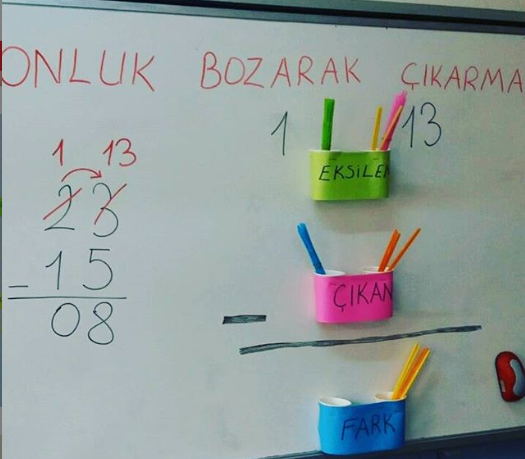 ONLUK BOZARAK ÇIKARMA
1 13
23
- 15
08
1 13
EKSİLEN
ÇIKAN
-
FARK